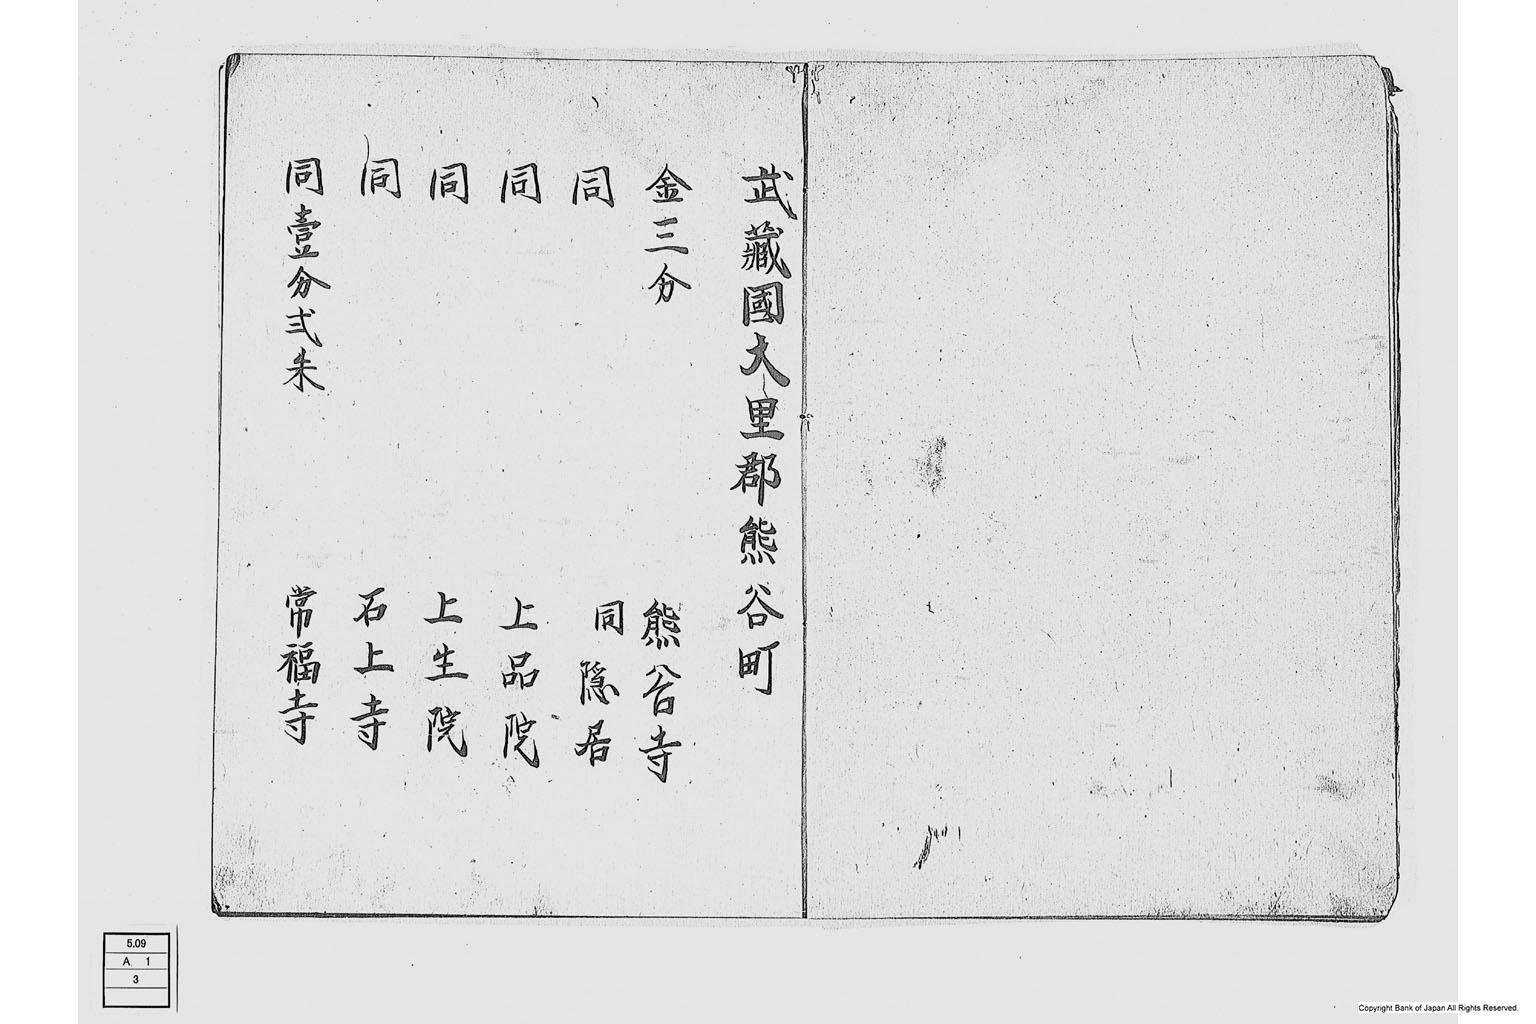 武藏國大里郡熊谷町
金三分 熊谷寺
同 同隠居
同 上品院
同 上生院
同 石上寺
同壹分弐朱 常福寺
5.09
A 1
3
Copyright Bank of Japan All Rights Reserved.